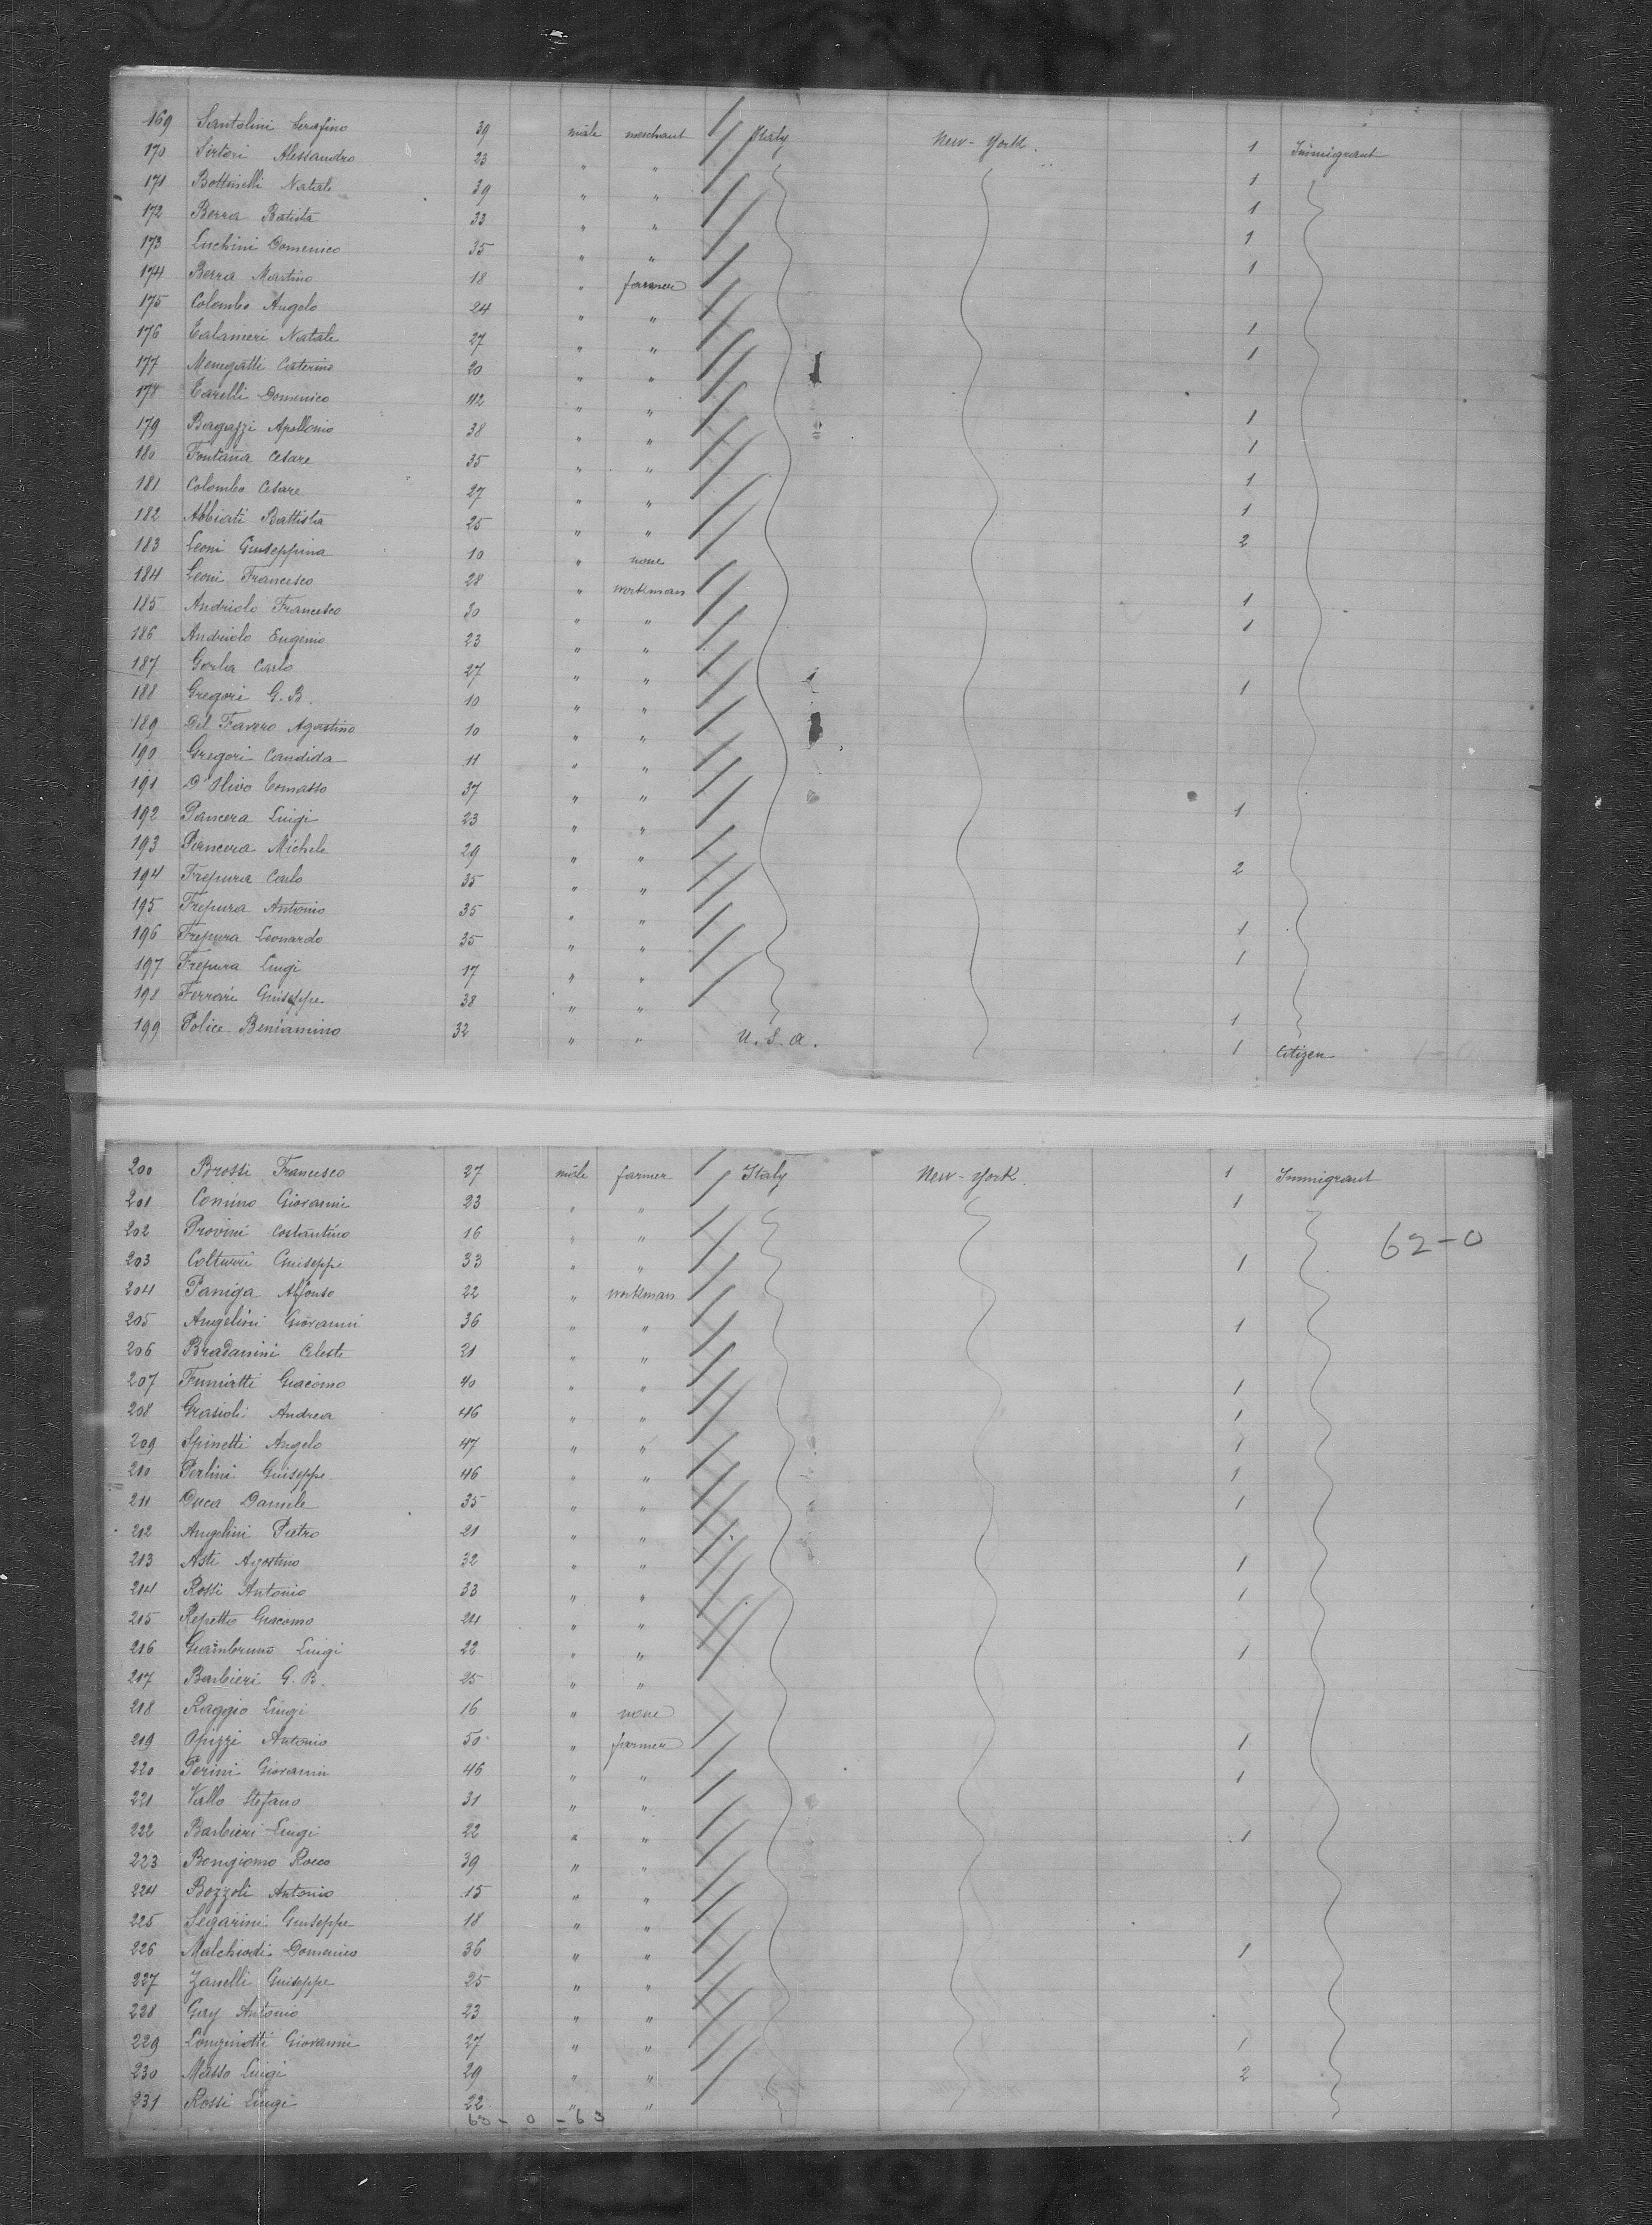 169 Santolini Serafino 39 male merchant Italy New-York. 1 Immigrant
170 Sirtori Alessandro 23 " " 1
171 Bottinelli Natale 39 " " 1
172 Berra Batista 33 " " 1
173 Luchini Domenico 35 " " 1
174 Berra Martino 18 " farmer
175 Colombo Angelo 24 " " 1
176 Calanieri Natale 27 " " 1
177 Menegatti Caterino 20 " "
178 Carelli Domenico 42 " " 1
179 Bagazzi Apollonio 38 " " 1
180 Fontana Cesare 35 " " 1
181 Colombo Cesare 27 " " 1
182 Abbiati Battista 25 " " 2
183 Leoni Giuseppina 10 " none
184 Leoni Francesco 28 " workman 1
185 Andriolo Francesco 30 " " 1
186 Andriolo Eugenio 23 " "
187 Gorla Carlo 27 " " 1
188 Gregori G. B. 10 " "
189 Del Favero Agostino 10 " "
190 Gregori Candida 11 " "
191 D'Olivo Tomasso 37 " " 1
192 Pancera Luigi 23 " "
193 Pancera Michele 29 " " 2
194 Frepura Carlo 35 " "
195 Frepura Antonio 35 " " 1
196 Frepura Leonardo 35 " " 1
197 Frepura Luigi 17 " "
198 Ferrari Giuseppe 38 " " 1
199 Police Beniamino 32 " " U.S.A. 1 Citizen
200 Brossi Francesco 27 male farmer Italy New-York. 1 Immigrant
201 Comino Giovanni 23 " " 1
202 Provini Costantino 16 " " 62-0
203 Colturri Giuseppe 33 " " 1
204 Paniga Alfonso 22 " workman
205 Angelini Giovanni 36 " " 1
206 Bradanini Celeste 21 " "
207 Fumiatti Giacomo 40 " " 1
208 Grasioli Andrea 46 " " 1
209 Spinetti Angelo 47 " " 1
210 Perlini Giuseppe 46 " " 1
211 Duca Daniele 35 " " 1
212 Angelini Pietro 21 " "
213 Asti Agostino 32 " " 1
214 Rossi Antonio 33 " " 1
215 Repetto Giacomo 24 " "
216 Giambruno Luigi 22 " " 1
217 Barbieri G. B. 25 " "
218 Raggio Luigi 16 " none
219 Opizzi Antonio 50 " farmer 1
220 Perini Giovanni 46 " " 1
221 Vallo Stefano 31 " "
222 Barbieri Luigi 22 " " 1
223 Bongiorno Rocco 39 " "
224 Bozzoli Antonio 15 " "
225 Segarini Giuseppe 18 " "
226 Malchiodi Domenico 36 " " 1
227 Zanelli Giuseppe 25 " "
228 Gay Antonio 23 " "
229 Longinotti Giovanni 27 " " 1
230 Masso Luigi 29 " " 2
231 Rossi Luigi 22 " "
63 - 0 - 63